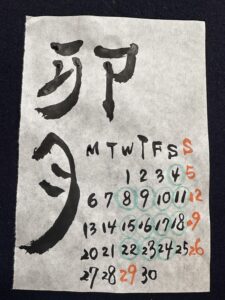 卯
月
M T W T F S S
1 2 3 4 5
6 7 8 9 10 11 12
13 14 15 16 17 18 19
20 21 22 23 24 25 26
27 28 29 30